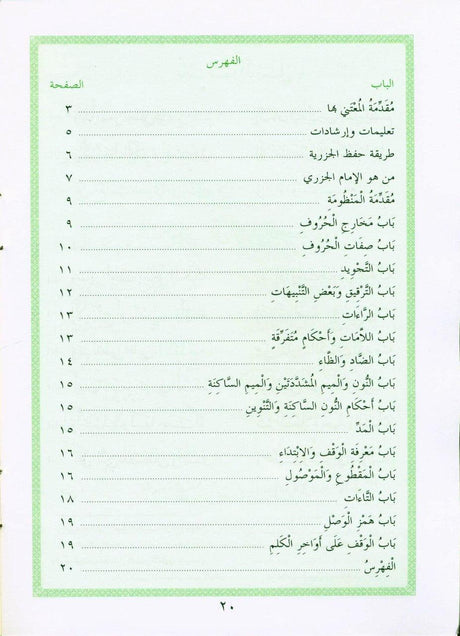 الفهرس
الباب الصفحة
مُقَدِّمَةُ الْمُعْتَنِي بِهَا ٣
تعليمات وإرشادات ٥
طريقة حفظ الجزرية ٦
من هو الإمام الجزري ٧
مُقَدِّمَةُ الْمَنْظُومَةِ ٩
بَابُ مَخَارِجِ الْحُرُوفِ ٩
بَابُ صِفَاتِ الْحُرُوفِ ١٠
بَابُ التَّجْوِيدِ ١١
بَابُ التَّرْقِيقِ وَبَعْضِ التَّنْبِيهَاتِ ١٢
بَابُ الرَّاءَاتِ ١٣
بَابُ اللاَّمَاتِ وَأَحْكَامٍ مُتَفَرِّقَةٍ ١٣
بَابُ الضَّادِ وَالظَّاءِ ١٤
بَابُ النُّونِ وَالْمِيمِ الْمُشَدَّدَتَيْنِ وَالْمِيمِ السَّاكِنَةِ ١٥
بَابُ أَحْكَامِ النُّونِ السَّاكِنَةِ وَالتَّنْوِينِ ١٥
بَابُ الْمَدِّ ١٥
بَابُ مَعْرِفَةِ الْوَقْفِ وَالِابْتِدَاءِ ١٦
بَابُ الْمَقْطُوعِ وَالْمَوْصُولِ ١٦
بَابُ التَّاءَاتِ ١٨
بَابُ هَمْزِ الْوَصْلِ ١٩
بَابُ الْوَقْفِ عَلَى أَوَاخِرِ الْكَلِمِ ١٩
الْفِهْرِسُ ٢٠
٢٠